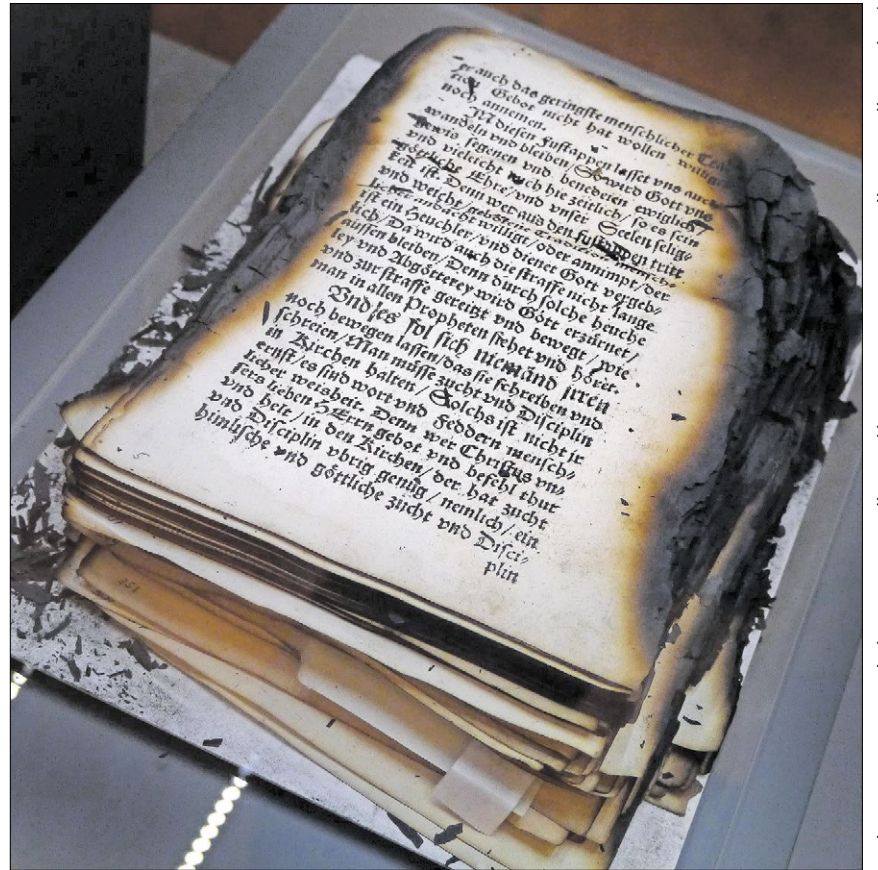 er auch das geringste menschlicher
Gebot nicht hat wollen willigen
noch annemen.
IN diesen Fusstappen lasset vns auch
wandeln vnd bleiben / So wird Gott vns
gewis segenen vnd benedeien ewiglich /
vnd vieleicht auch hie zeitlich / so es sein
göttliche Ehre / vnd vnser Seelen selig⸗
keit ist. Denn wer aus den fusstappen tritt
vnd weicht /
andacht williget / oder annimpt / der
ist ein Heuchler / vnd dienet Gott vergeb⸗
lich / Da wird auch die straffe nicht lange
aussen bleiben / Denn durch solche heuche
ley vnd Abgötterey wird Gott erzürnet /
vnd zur straffe gereitzt vnd bewegt / wie
man in allen Propheten siehet vnd höret.
Vnd es sol sich niemand jrren
noch bewegen lassen / das sie schreiben vnd
schreien / Man müsse zucht vnd Disciplin
in Kirchen halten / Solchs ist nicht jr
ernst / es sind wort vnd feddern mensch⸗
licher weisheit. Denn wer Christus vn⸗
sers lieben HErrn gebot vnd befehl thut
vnd helt / in den Kirchen / der hat zucht
vnd Disciplin vbrig genug / nemlich / ein
himlische vnd göttliche zucht vnd Disci⸗
plin